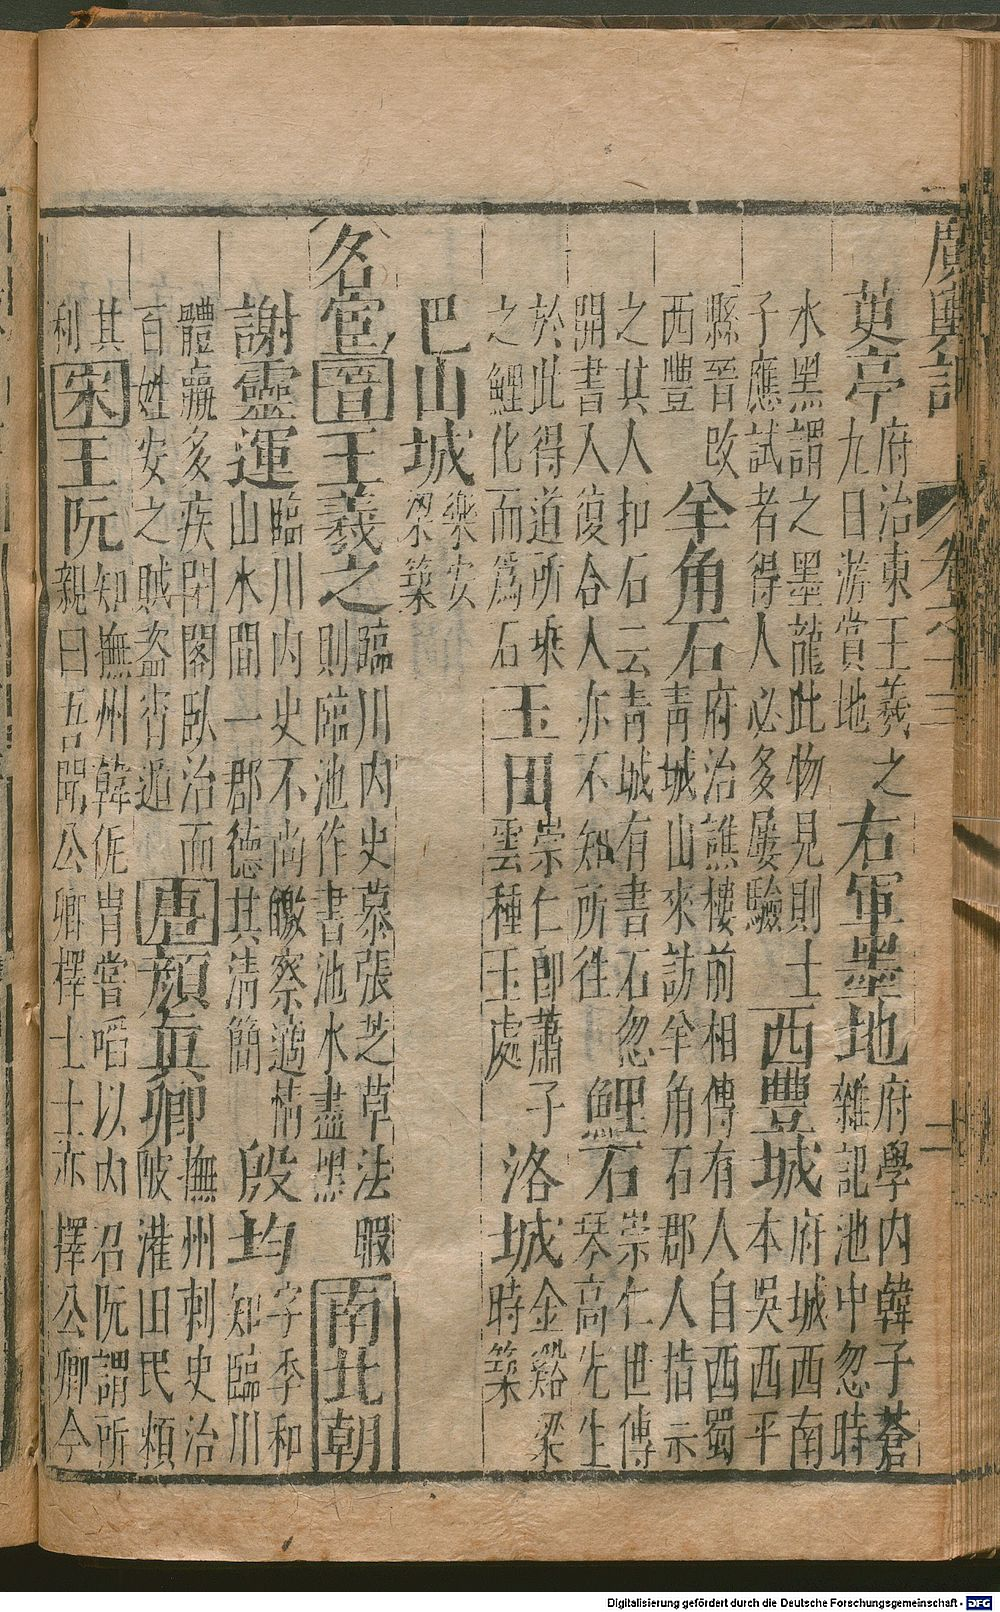 廣輿記 卷之十三 二
茰亭 府治東王羲之九日游賞地 右軍墨地 府學內韓子蒼雜記池中忽時
水黑謂之墨龍此物見則士子應試者得人必多屢驗 西豐城 府城西南本吳西平
縣晉改西豐 羊角石 府治譙樓前相傳有人自西蜀靑城山來訪羊角石郡人指示
之其人扣石云靑城有書石忽開書入復合人亦不知所往 鯉石 崇仁世傳琴高先生
於此得道所乘之鯉化而爲石 玉田 崇仁卽蕭子雲種玉處 洛城 金谿梁時築
巴山城 樂安梁築
名宦 晉 王羲之 臨川內史慕張芝草法暇則臨池作書池水盡黑 南北朝
謝靈運 臨川內史不尚皦察適情山水間一郡德其清簡 殷均 字季和知臨川
體羸多疾閉閣臥治而百姓安之賊盜皆遁 唐 顏眞卿 撫州刺史治陂灌田民頼
其利 宋 王阮 知撫州韓侂胄嘗啗以內召阮謂所親曰吾聞公卿擇士士亦擇公卿今
Digitalisierung gefördert durch die Deutsche Forschungsgemeinschaft - DFG